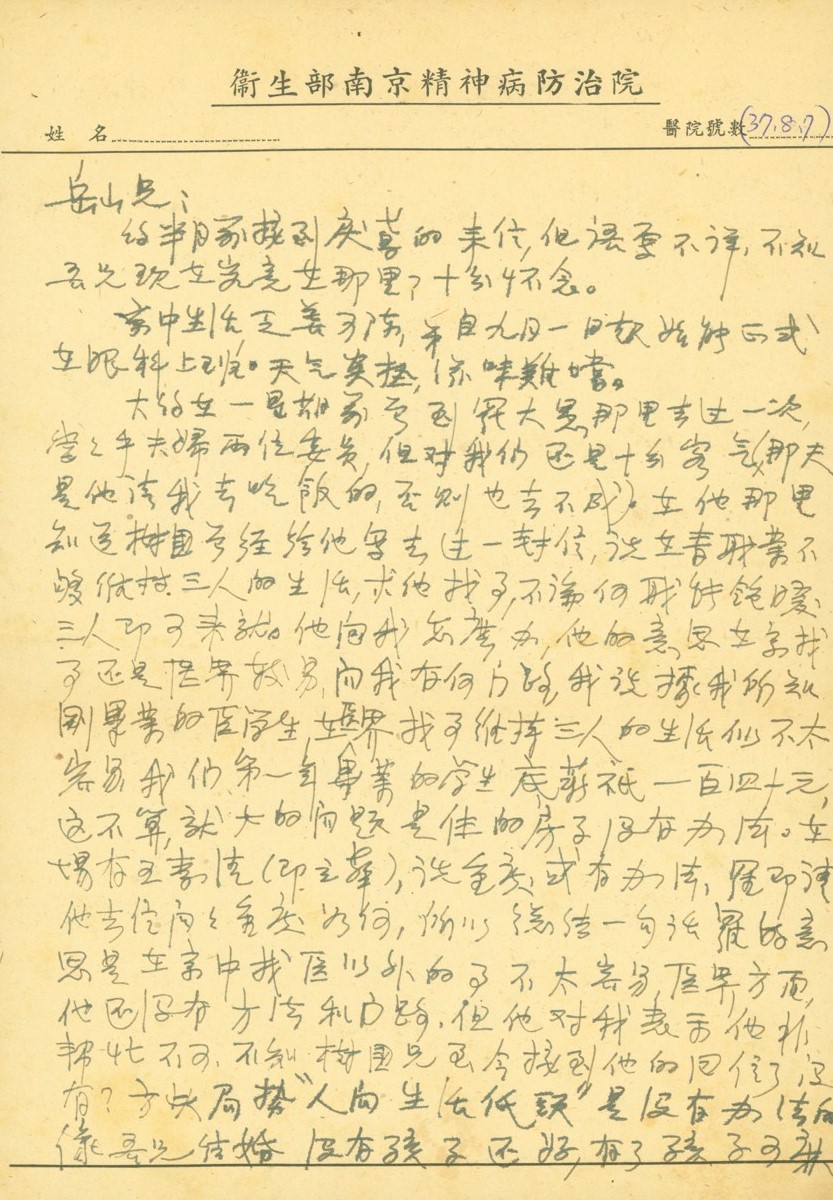 衞生部南京精神病防治院
姓 名
醫院號數(37.8.7)
岳山兄:
約半月前接到庆喜的来信,但语焉不详,不知
吾兄现在究竟在那里?十分怀念。
京中生活乏善可陈,弟自九月一日起始能正式
在眼科上班。天气炎热,滋味難嚐。
大约在一星期前曾到羅大愚那里去过一次,
堂之乎夫婦两位委员,但对我们还是十分客气(那天
是他请我去吃飯的,否则也去不成)。在他那里
知道树國曾经给他写去过一封信,说在春职業不
够维持三人的生活,求他找事,不論何职能飽暖
三人即可来就。他问我怎麽办,他的意思在京找
事还是医界较易,问我有何门路,我说據我所知
刚畢業的医学生在医界找事维持三人的生活似不太
容易我们第一年畢業的学生底薪祗一百四十元,
这不算,就大的问题是住的房子没有办法。在
場有王素清(即立華),说重庆或有办法,羅即请
他去信问问重庆如何,所以總结一句话羅的意
思是在京中找医以外的事不太容易,医界方面,
他还没有方法和门路,但他对我表示他非
帮忙不可,不知树國兄至今接到他的回信了没
有?方块局势"人向生活低頭"是没有办法的
像吾兄结婚没有孩子还好,有了孩子可麻